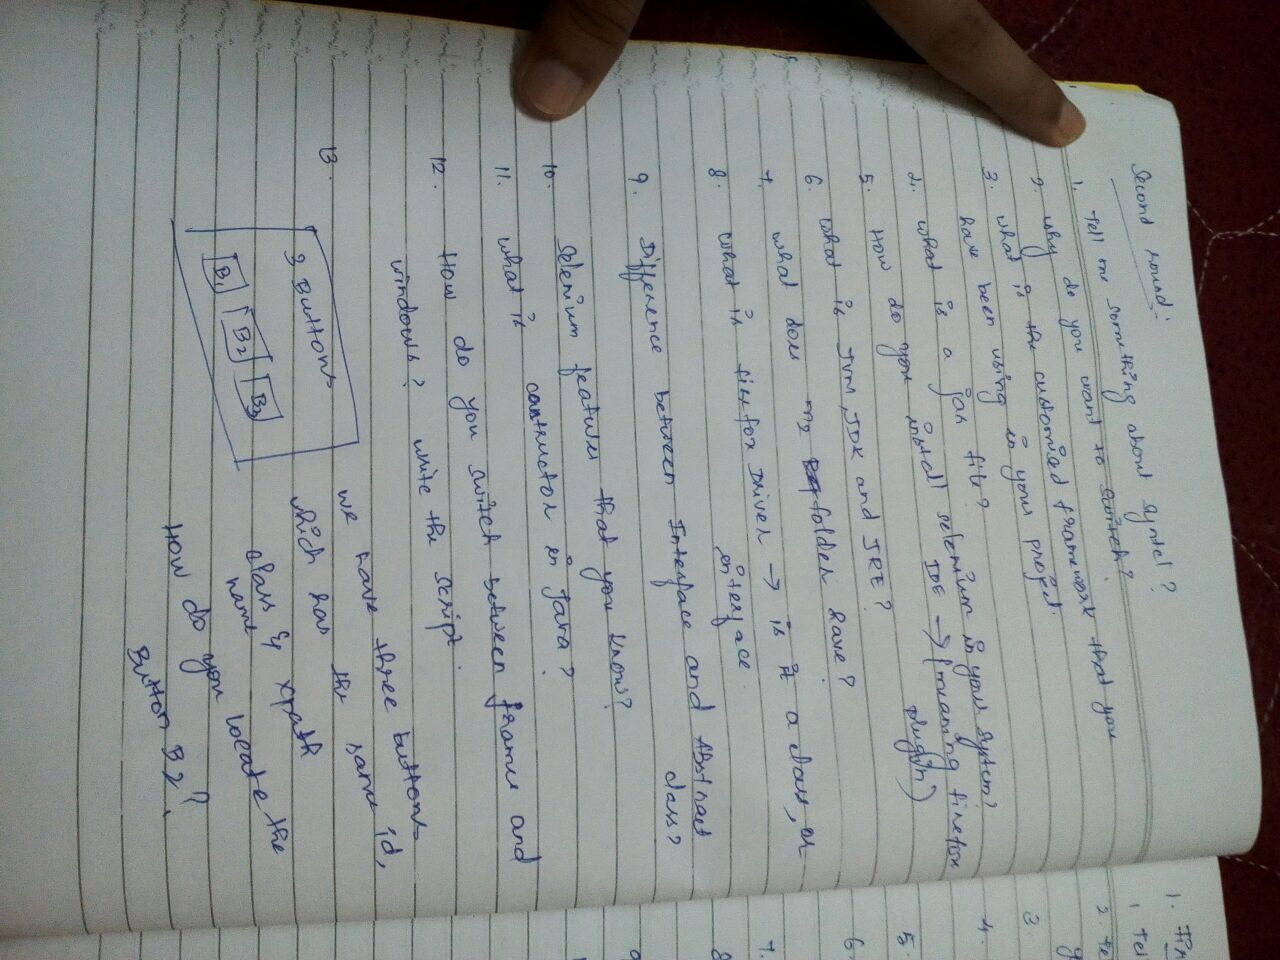 Second round:
1. Tell me something about syntel?
2. why do you want to switch?
3. what is the customized framework that you
have been using in your project.
4. what is a jar file?
5. How do you install selenium in your system?
IDE → (meaning firefox
plugin)
6. what is JVM, JDK and JRE?
7. what does m2 folder have?
8. what is firefox Driver → is it a class, or
interface.
9. Difference between Interface and Abstract
class?
10. Selenium features that you know?
11. what is constructor in java?
12. How do you switch between frames and
windows? write the script.
13.
3 Buttons
B1 B2 B3
we have three buttons
which has the same id,
class & xpath
name
How do you locate the
Button B2?
1.
1. Tel
2. Te
3.
4.
5.
6.
7.
8
9